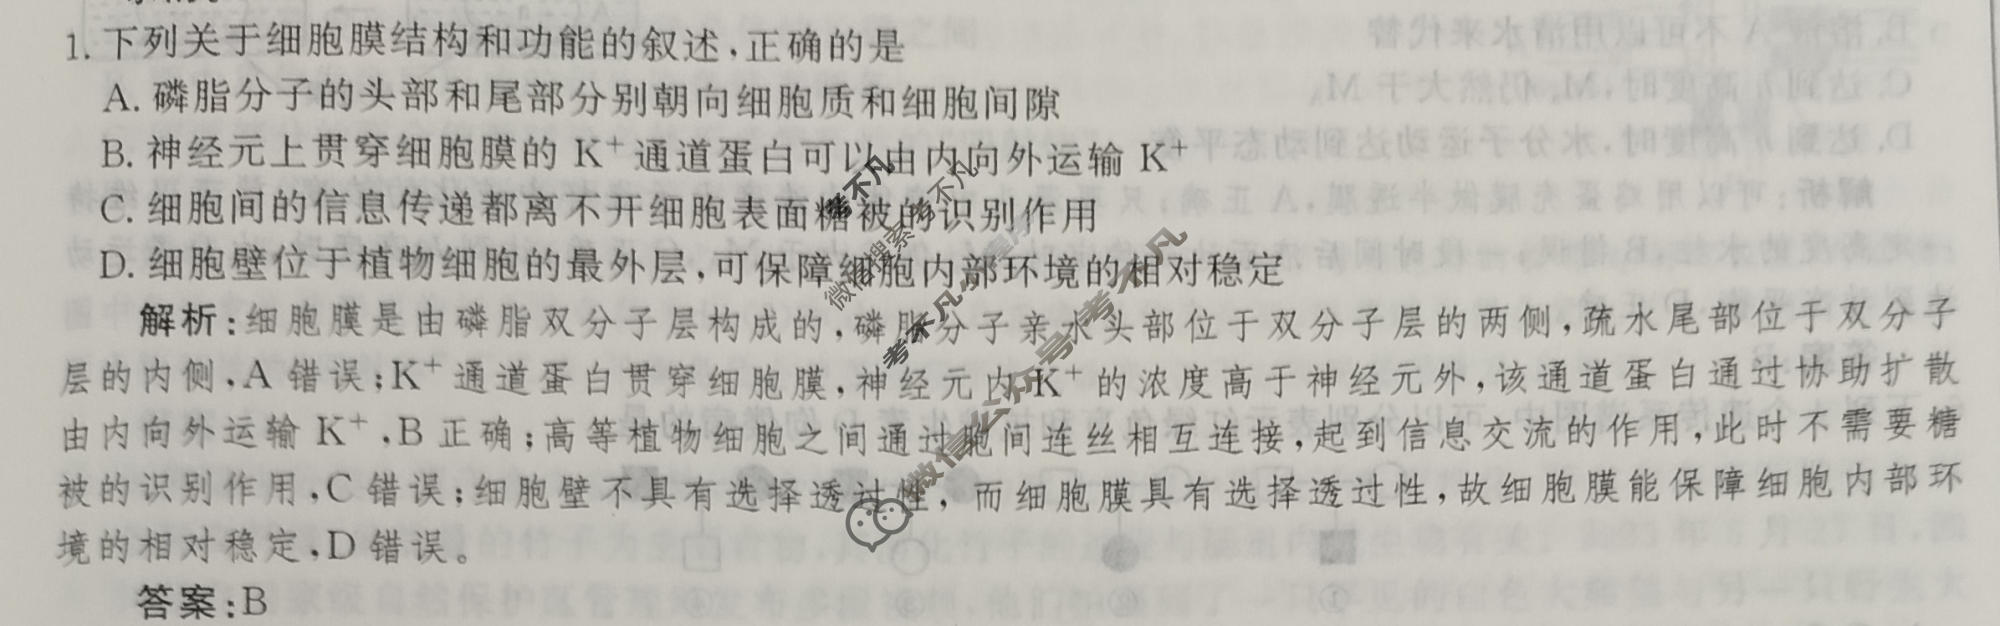 1. 下列关于细胞膜结构和功能的叙述,正确的是
A. 磷脂分子的头部和尾部分别朝向细胞质和细胞间隙
B. 神经元上贯穿细胞膜的 K⁺ 通道蛋白可以由内向外运输 K⁺
C. 细胞间的信息传递都离不开细胞表面糖被的识别作用
D. 细胞壁位于植物细胞的最外层,可保障细胞内部环境的相对稳定
解析:细胞膜是由磷脂双分子层构成的,磷脂分子亲水头部位于双分子层的两侧,疏水尾部位于双分子
层的内侧,A 错误;K⁺ 通道蛋白贯穿细胞膜,神经元内 K⁺ 的浓度高于神经元外,该通道蛋白通过协助扩散
由内向外运输 K⁺,B 正确;高等植物细胞之间通过胞间连丝相互连接,起到信息交流的作用,此时不需要糖
被的识别作用,C 错误;细胞壁不具有选择透过性,而细胞膜具有选择透过性,故细胞膜能保障细胞内部环
境的相对稳定,D 错误。
答案:B